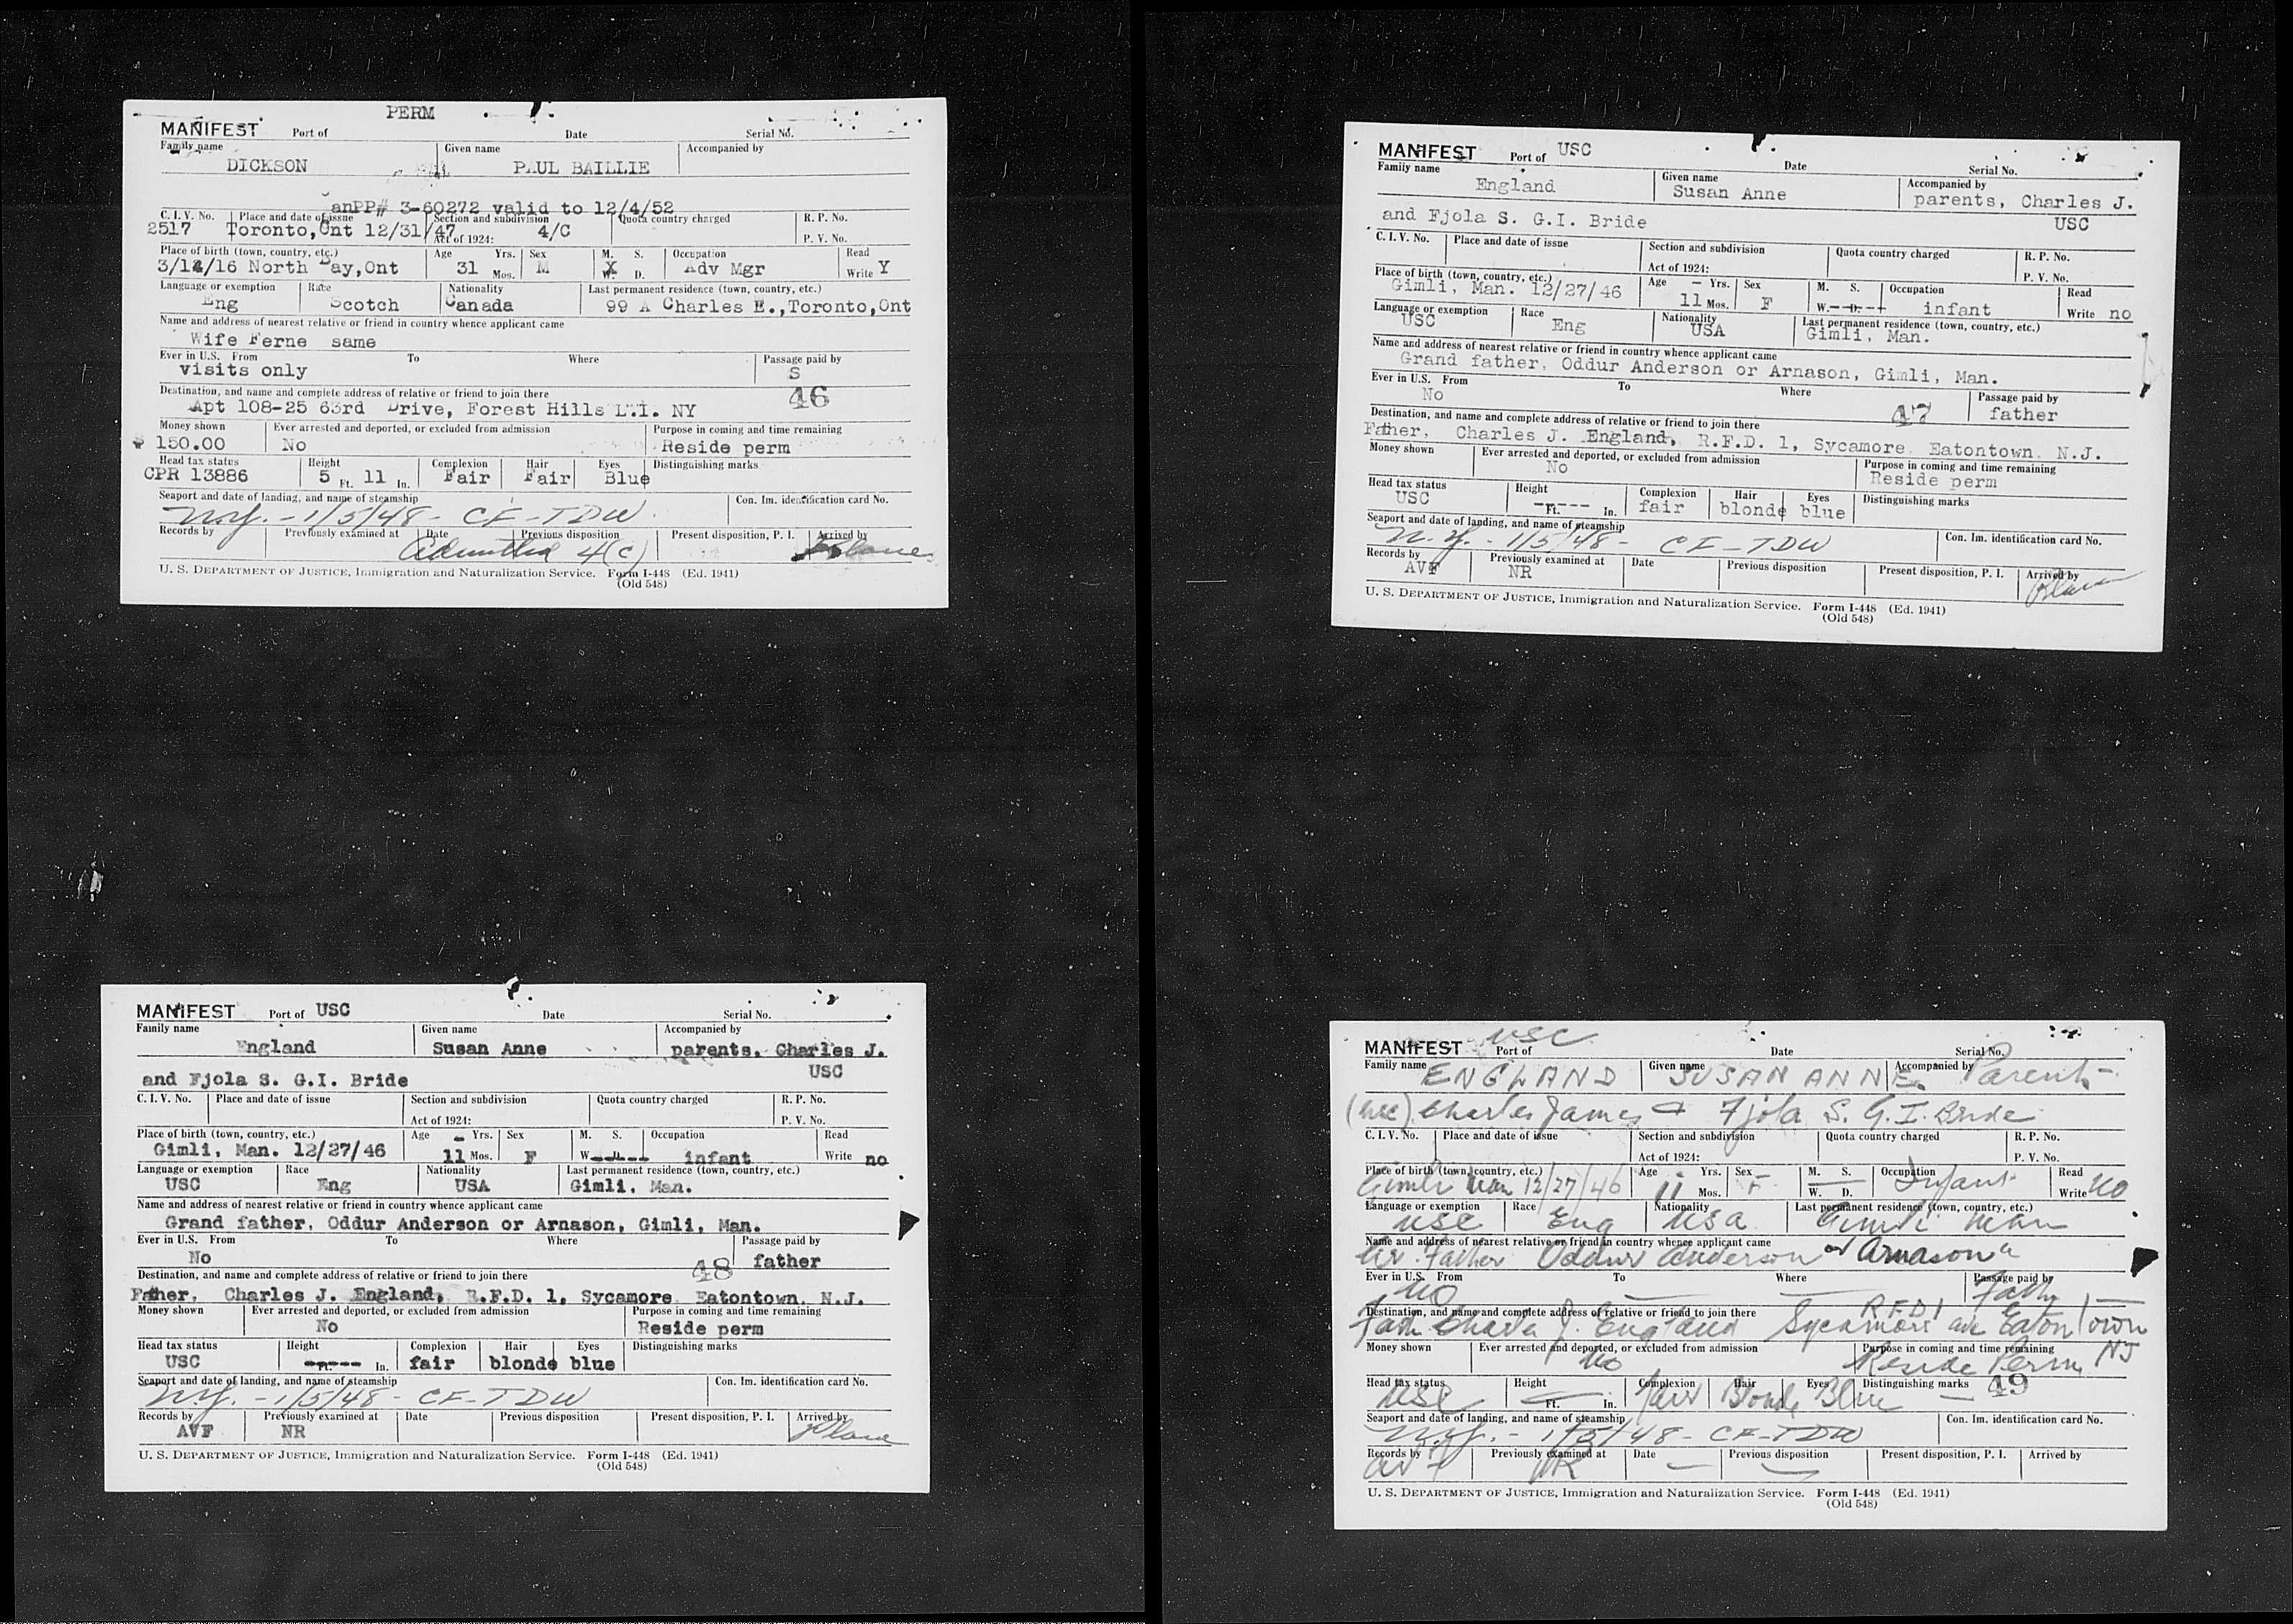 PERM
MANIFEST Port of Date Serial No.
Family name Given name Accompanied by
DICKSON PAUL BAILLIE
anPP# 3-60272 valid to 12/4/52
C. I. V. No. Place and date of issue Section and subdivision Quota country charged R. P. No.
2517 Toronto,Ont 12/31/47 Act of 1924: 4/C P. V. No.
Place of birth (town, country, etc.) Age Yrs. Sex M. S. Occupation Read
North Bay,Ont 31 Mos. M X W. D. Adv Mgr Write Y
Language or exemption Race Nationality Last permanent residence (town, country, etc.)
Eng Scotch Canada 99 A Charles E.,Toronto,Ont
Name and address of nearest relative or friend in country whence applicant came
Wife Ferne same
Ever in U.S. From To Where Passage paid by
visits only S
Destination, and name and complete address of relative or friend to join there 46
Apt 108-25 63rd Drive, Forest Hills L.I. NY
Money shown Ever arrested and deported, or excluded from admission Purpose in coming and time remaining
$ 150.00 No Reside perm
Head tax status Height Complexion Hair Eyes Distinguishing marks
CPR 13886 5 Ft. 11 In. Fair Fair Blue
Seaport and date of landing, and name of steamship Con. Im. identification card No.
N.Y. - 1/5/48 - CF-TDW
Records by Previously examined at Date Previous disposition Present disposition, P. I. Arrived by
Admitted 4(c) Plane
U. S. DEPARTMENT OF JUSTICE, Immigration and Naturalization Service. Form I-448 (Ed. 1941)
(Old 548)
MANIFEST Port of USC Date Serial No.
Family name Given name Accompanied by
England Susan Anne parents, Charles J.
and Fjola S. G.I. Bride USC
C. I. V. No. Place and date of issue Section and subdivision Quota country charged R. P. No.
Act of 1924: P. V. No.
Place of birth (town, country, etc.) Age - Yrs. Sex M. S. Occupation Read
Gimli, Man. 12/27/46 11 Mos. F W. D. infant Write no
Language or exemption Race Nationality Last permanent residence (town, country, etc.)
USC Eng USA Gimli, Man.
Name and address of nearest relative or friend in country whence applicant came
Grand father, Oddur Anderson or Arnason, Gimli, Man.
Ever in U.S. From To Where Passage paid by
No 47 father
Destination, and name and complete address of relative or friend to join there
Father, Charles J. England, R.F.D. 1, Sycamore Eatontown N.J.
Money shown Ever arrested and deported, or excluded from admission Purpose in coming and time remaining
No Reside perm
Head tax status Height Complexion Hair Eyes Distinguishing marks
USC Ft. In. fair blonde blue
Seaport and date of landing, and name of steamship Con. Im. identification card No.
N.Y. - 1/5/48 - CF-TDW
Records by Previously examined at Date Previous disposition Present disposition, P. I. Arrived by
AVF NR Plane
U. S. DEPARTMENT OF JUSTICE, Immigration and Naturalization Service. Form I-448 (Ed. 1941)
(Old 548)
MANIFEST Port of USC Date Serial No.
Family name Given name Accompanied by
England Susan Anne parents, Charles J.
and Fjola S. G.I. Bride USC
C. I. V. No. Place and date of issue Section and subdivision Quota country charged R. P. No.
Act of 1924: P. V. No.
Place of birth (town, country, etc.) Age - Yrs. Sex M. S. Occupation Read
Gimli, Man. 12/27/46 11 Mos. F W. D. infant Write no
Language or exemption Race Nationality Last permanent residence (town, country, etc.)
USC Eng USA Gimli, Man.
Name and address of nearest relative or friend in country whence applicant came
Grand father, Oddur Anderson or Arnason, Gimli, Man.
Ever in U.S. From To Where Passage paid by
No 48 father
Destination, and name and complete address of relative or friend to join there
Father, Charles J. England, R.F.D. 1, Sycamore Eatontown N.J.
Money shown Ever arrested and deported, or excluded from admission Purpose in coming and time remaining
No Reside perm
Head tax status Height Complexion Hair Eyes Distinguishing marks
USC Ft. In. fair blonde blue
Seaport and date of landing, and name of steamship Con. Im. identification card No.
N.Y. - 1/5/48 - CF-TDW
Records by Previously examined at Date Previous disposition Present disposition, P. I. Arrived by
AVF NR Plane
U. S. DEPARTMENT OF JUSTICE, Immigration and Naturalization Service. Form I-448 (Ed. 1941)
(Old 548)
USC
MANIFEST Port of Date Serial No.
Family name ENGLAND Given name SUSAN ANNE Accompanied by Parents
(USC) Charles James + Fjola S. G.I. Bride
C. I. V. No. Place and date of issue Section and subdivision Quota country charged R. P. No.
Act of 1924: P. V. No.
Place of birth (town, country, etc.) Age Yrs. Sex M. S. Occupation Read
Gimli Man 12/27/46 11 Mos. F W. D. Infant Write No
Language or exemption Race Nationality Last permanent residence (town, country, etc.)
USC Eng USA Gimli Man
Name and address of nearest relative or friend in country whence applicant came
Gr. Father Oddur Anderson or Arnason "
Ever in U.S. From To Where Passage paid by
No Father
Destination, and name and complete address of relative or friend to join there RFD 1
Fath Charles J. England Sycamore ave Eatontown NJ
Money shown Ever arrested and deported, or excluded from admission Purpose in coming and time remaining
No Reside Perm
Head tax status Height Complexion Hair Eyes Distinguishing marks 49
USC Ft. In. fair Blonde Blue
Seaport and date of landing, and name of steamship Con. Im. identification card No.
N.Y. - 1/5/48 - CF-TDW
Records by Previously examined at Date Previous disposition Present disposition, P. I. Arrived by
AVF NR
U. S. DEPARTMENT OF JUSTICE, Immigration and Naturalization Service. Form I-448 (Ed. 1941)
(Old 548)